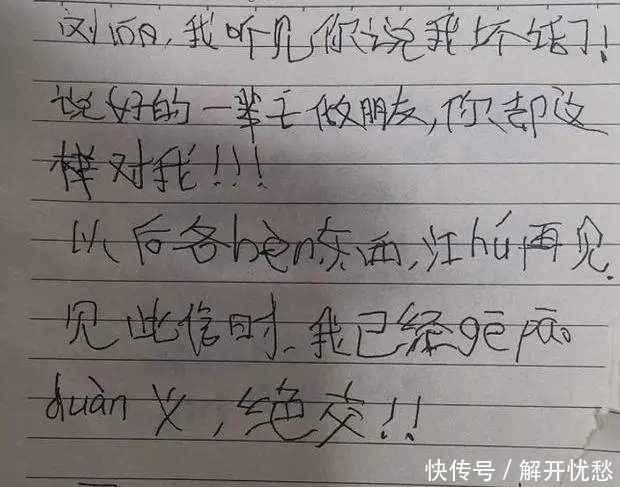 刘，我听见你说我坏话了！
说好的一辈子做朋友，你却这
样对我！！！
以后各bèn东西，江hú再见.
见此信时，我已经gē páo
duàn义，绝交！！
快传号／解开忧愁